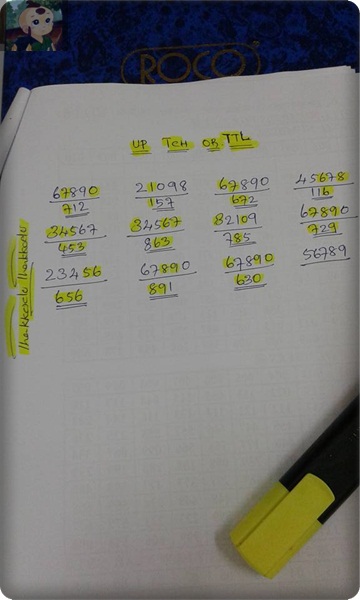 ROCO
UP TCH OR.TTL
67890 21098 67890 45678
712 157 672 116
34567 34567 32109 67890
453 863 785 729
23456 67890 67890 56789
656 891 630